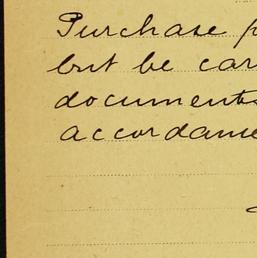 Purchase p
but be car
documents
accordance